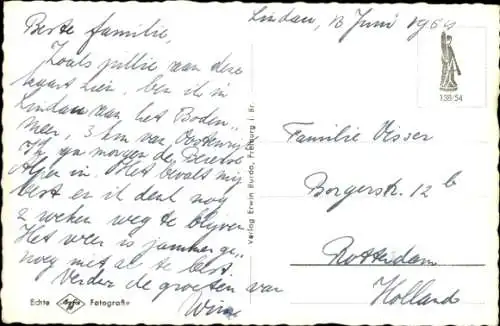 Lindau, 13 Juni 1964
Beste familie,
Zoals jullie aan deze
kaart zien, ben ik in
Lindau aan het Boden„
meer, 3 km van Oostenrijk
Ik ga morgen de
Alpen in. Het bevalt mij
best en ik denk nog
2 weken weg te blijven
Het weer is jammer ge„
noeg niet al te best.
Verder de groeten van
Wim
Echte Agfa Fotografie
Verlag Erwin Burda, Freiburg i. Br.
138/54
Familie Visser
Borgerstr. 12 b
Rotterdam
Holland